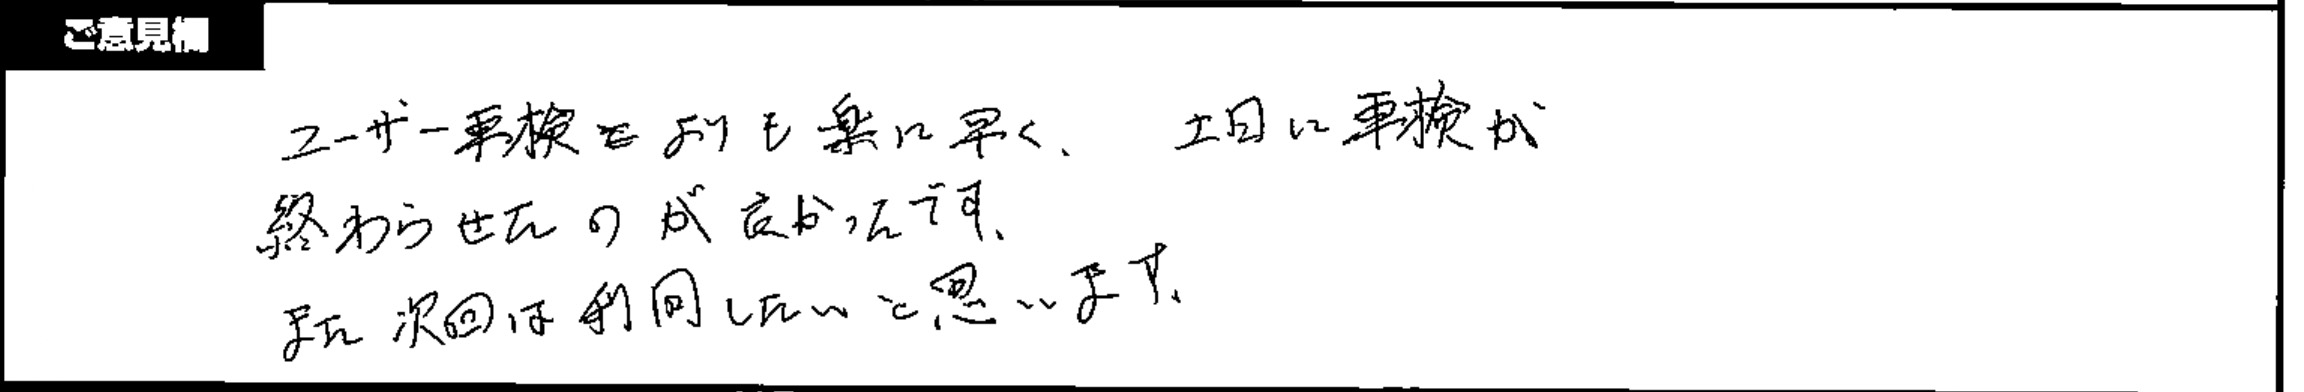 ご意見欄
ユーザー車検をよりも楽に早く、土日に車検が
終わらせたのが良かったです、
また次回は利同したいと思います、